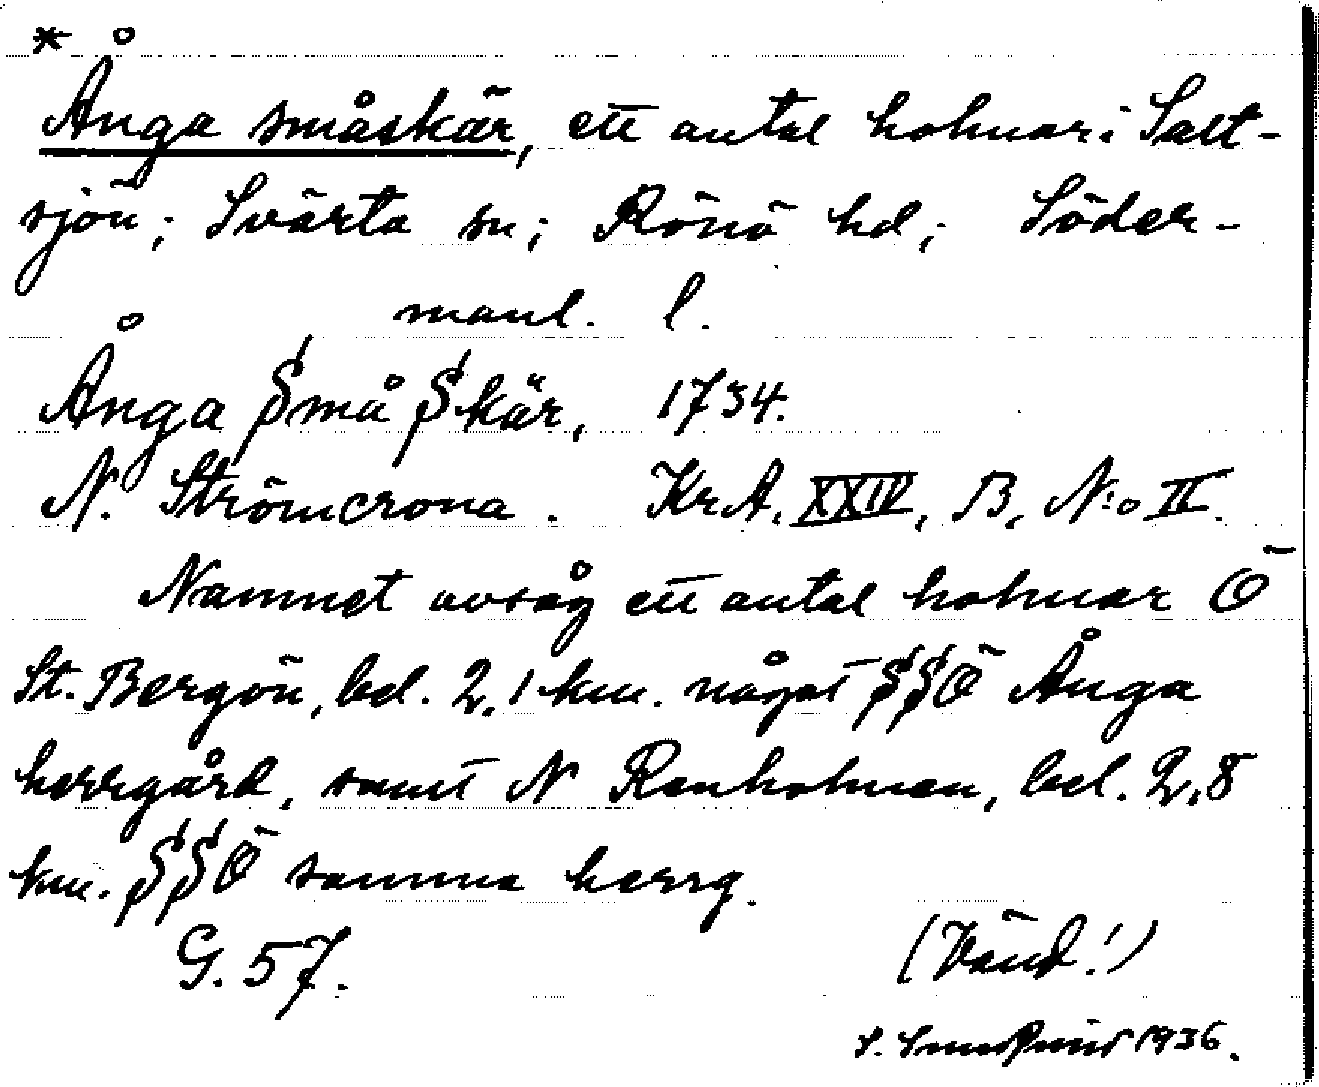 * Ånga småskär, ett antal holmar i Salt-
sjön; Svärta sn; Rönö hd; Söder-
manl. l.
Ånga Små Skär, 1734.
N. Strömcrona. KrA. XXIV, B, N:o II.
Namnet avsåg ett antal holmar Ö
St. Bergön, bel. 2,1 km. något SSÖ Ånga
herrgård, samt N Renholmen, bel. 2,8
km. SSÖ samma herrg.
G. 57.
(Vänd!)
S. 1936.